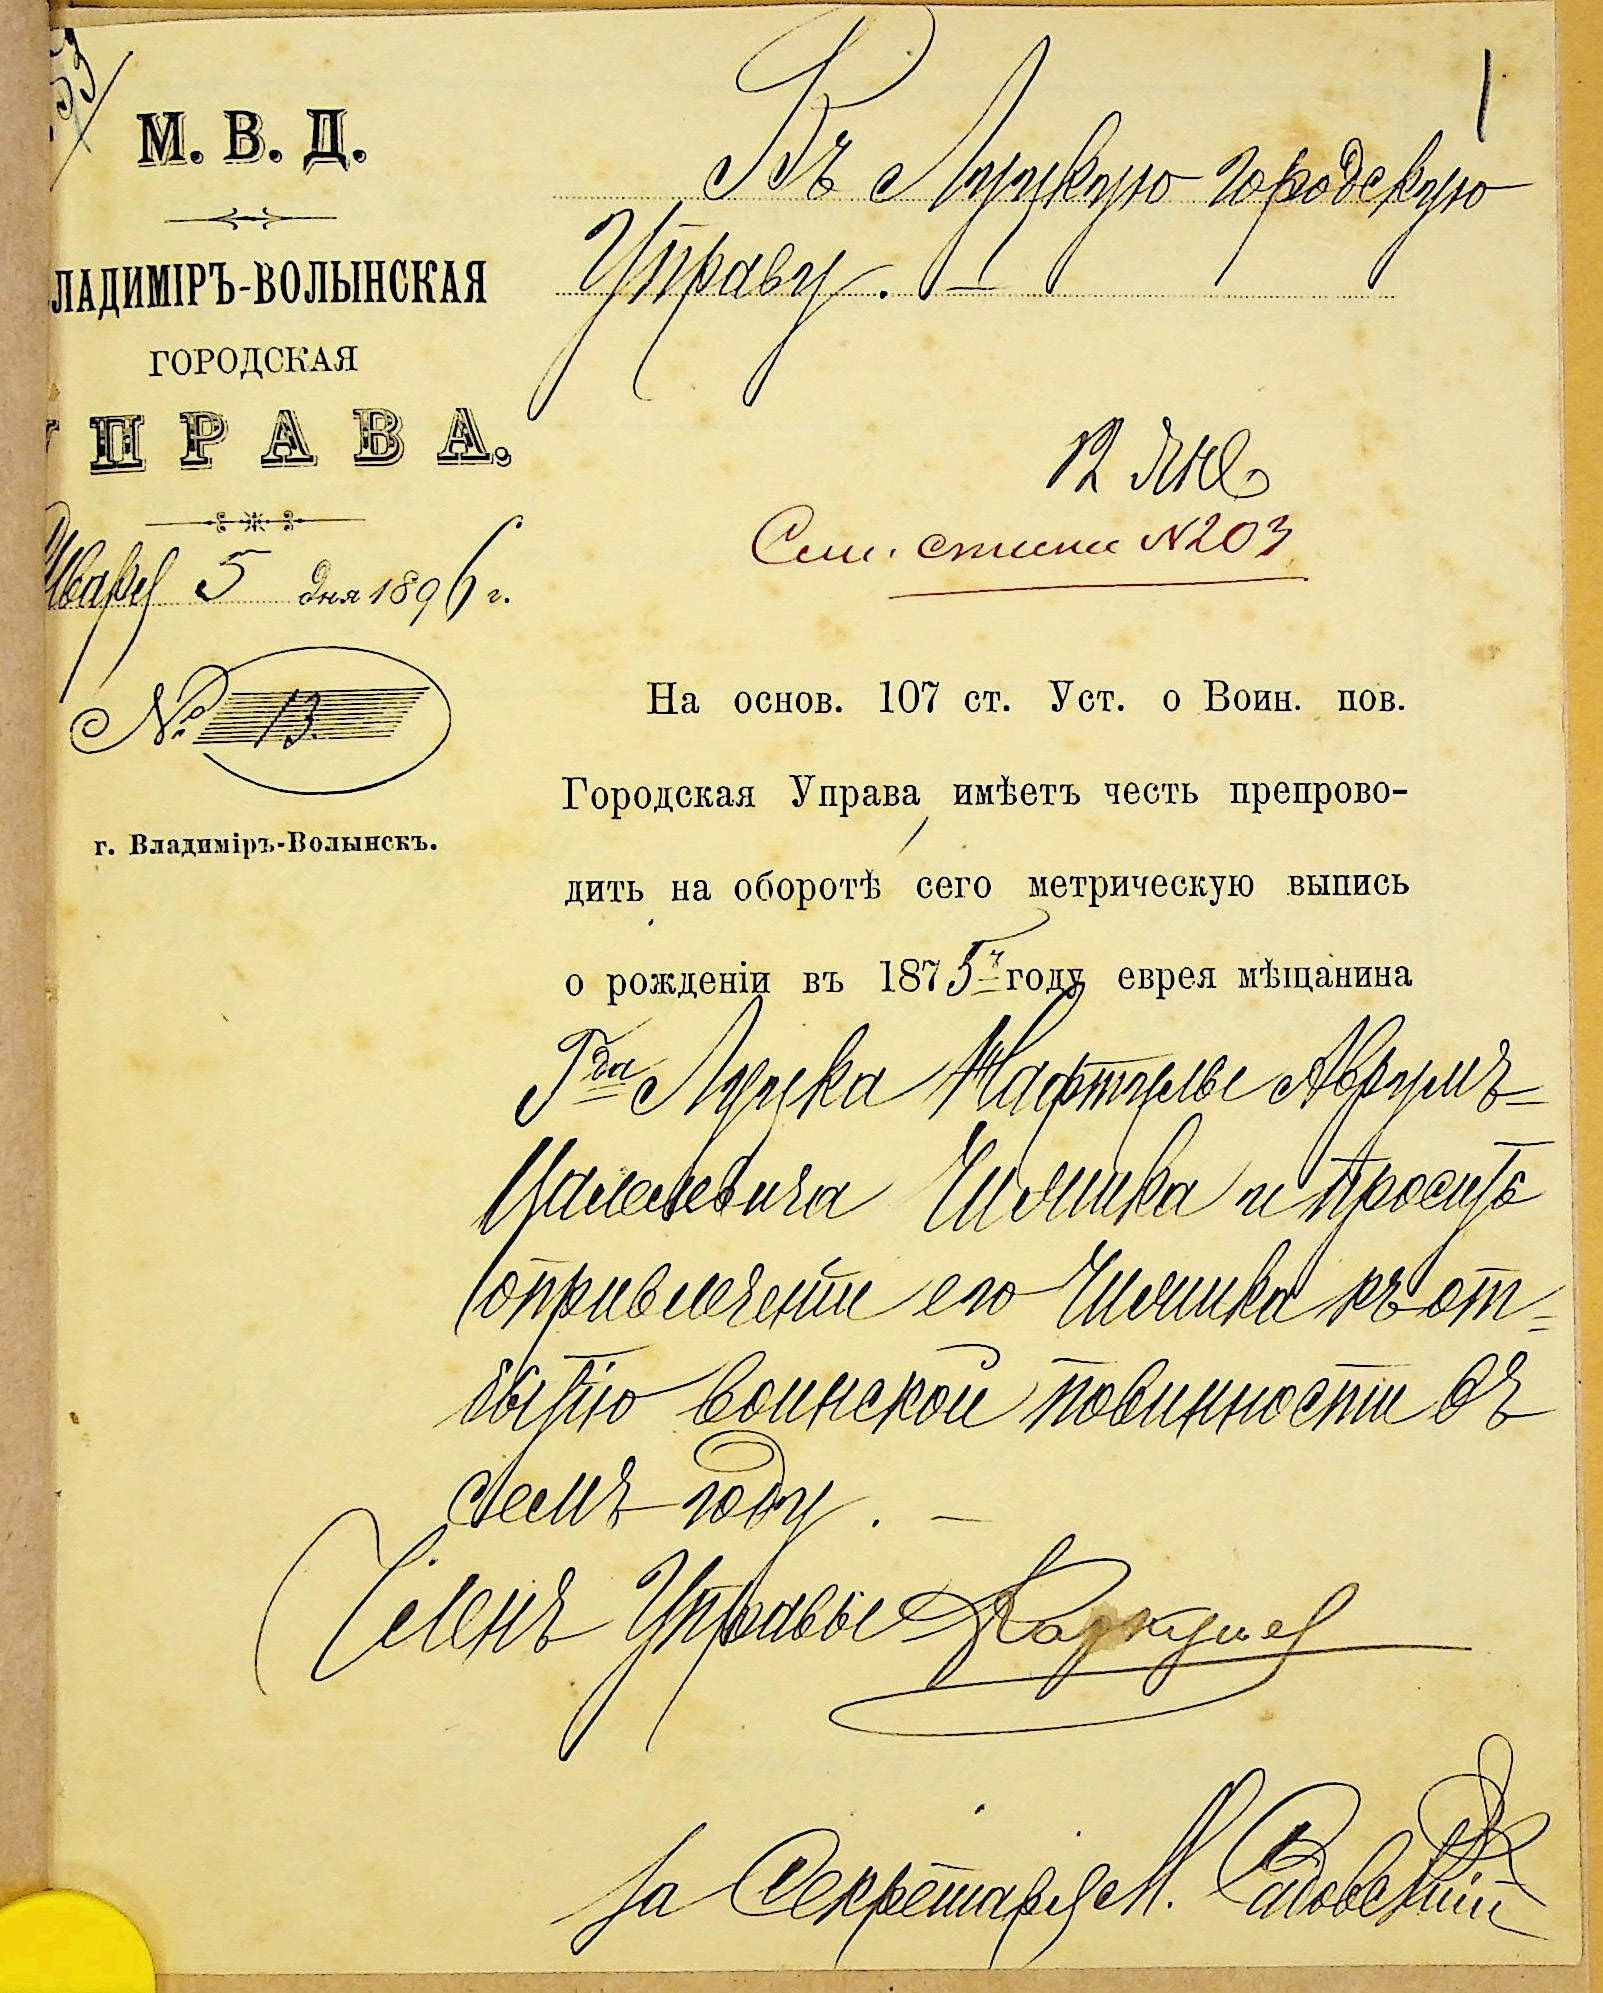 1
М. В. Д.
ЛАДИМІРЪ-ВОЛЫНСКАЯ
ГОРОДСКАЯ
УПРАВА.
Января 5 дня 1896 г.
№ 13.
г. Владиміръ-Волынскъ.
Въ Луцкую городскую
Управу. —
12 Янв
N203
На основ. 107 ст. Уст. о Воин. пов.
Городская Управа имѣетъ честь препрово-
дить на оборотѣ сего метрическую выпись
о рожденіи въ 1875 году еврея мѣщанина
Луцка Нафтулы Аврумъ=
Чишика и проситъ
о привлеченіи его Чишика къ от=
бытію воинской повинности въ
семъ году. —
Членъ Управы
за Секретаря М. Садовскій